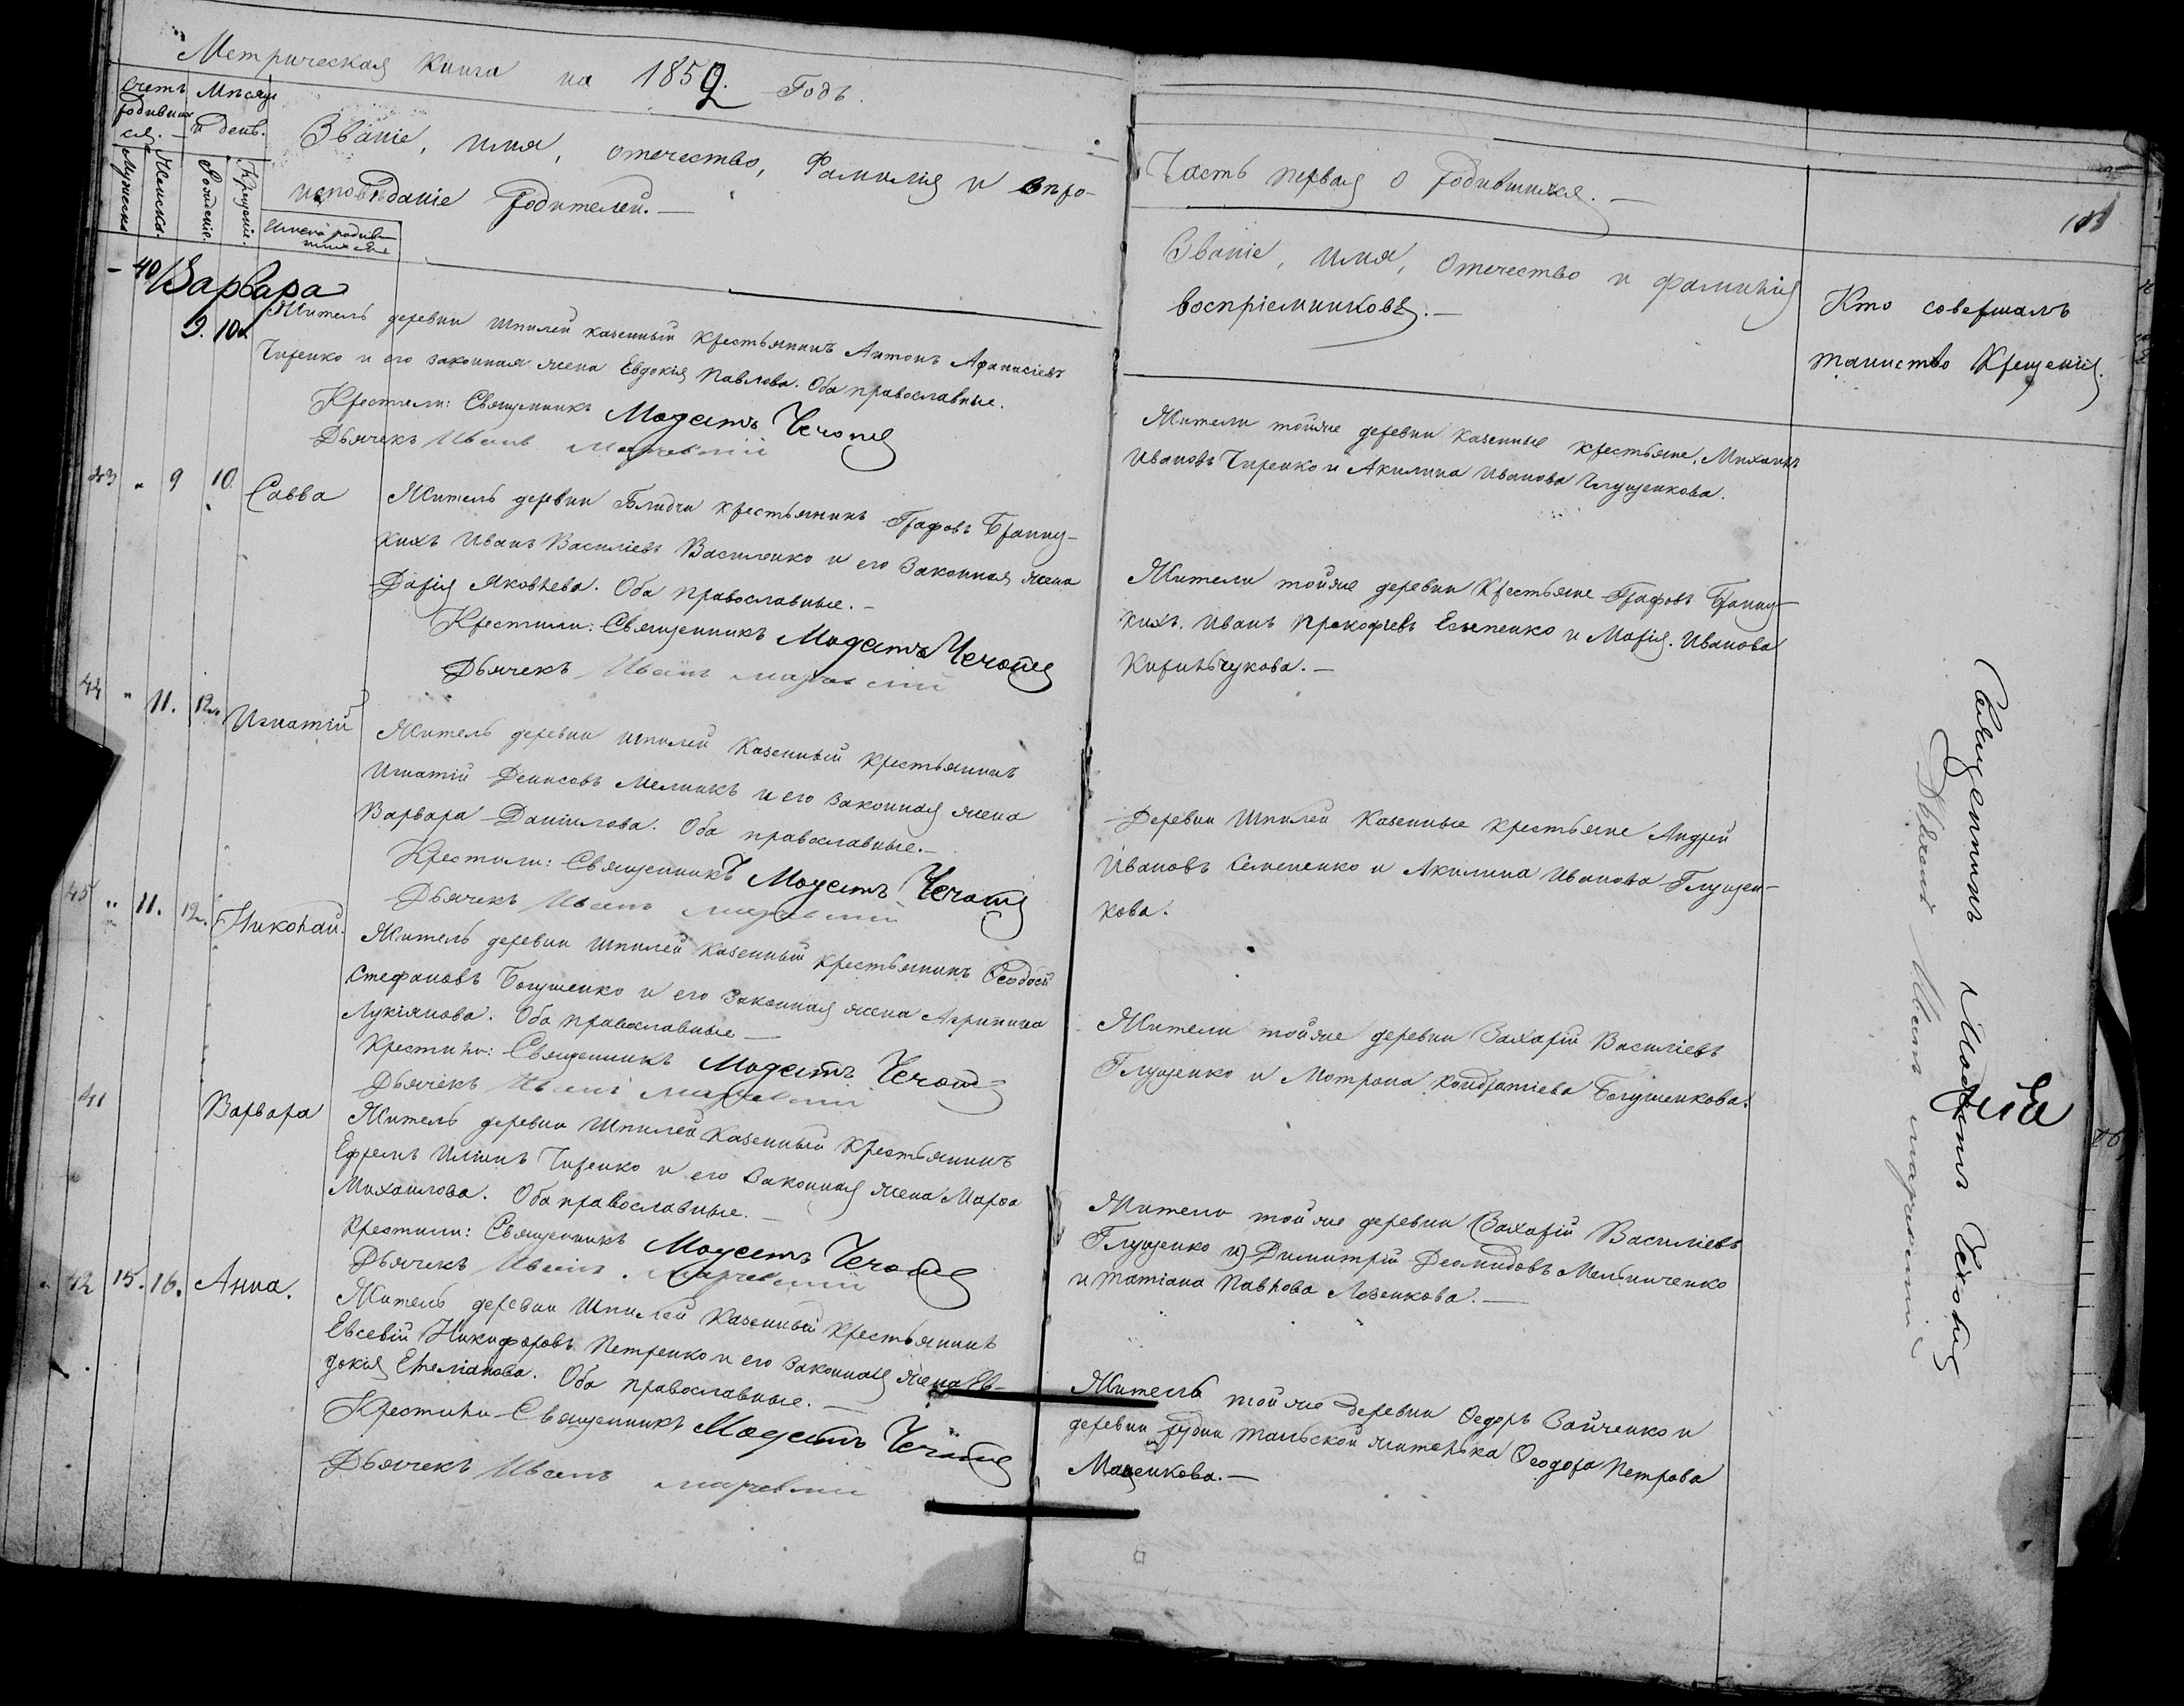 Метрическая книга на 1852. Годъ.
Часть первая о родившихся.
Счетъ родившихся.
Мѣсяцъ и день.
Мужеска
Женска.
Рожденіе.
Крещеніе.
Имена родившихся
Званіе, имя, отечество, Фамилія и вѣро-
исповѣданіе родителей.
Званіе, имя, Отечество и фамилія
воспріемниковъ.
Кто совершалъ
таинство Крещенія.
40 Варвара
9. 10.
Житель деревни Шпилей казенный крестьянинъ Антонъ Афанасіевъ
Чиренко и его законная жена Евдокія Павлова. Оба православные.
Крестили: Священникъ Модестъ
Дьячекъ Иванъ
Жители тойже деревни казенные крестьяне, Михаилъ
Ивановъ Чиренко и Акилина Иванова Глущенкова.
43 " 9 10. Савва
Житель деревни Блидчи крестьянинъ Графовъ Браниц-
кихъ Иванъ Василіевъ Василенко и его Законная жена
Дарія Яковлева. Оба православные.
Крестили: Священникъ Модестъ
Дьячекъ Иванъ
Жители тойже деревни Крестьяне Графовъ Браниц-
кихъ. Иванъ Прокофіевъ Есипенко и Марія Иванова
44 " 11. 12. Игнатій
Житель деревни Шпилей Казенный крестьянинъ
Игнатій Денисовъ Мелникъ и его Законная жена
Варвара Даніилова. Оба православные.
Крестили: Священникъ Модестъ
Дьячекъ Иванъ
Деревни Шпилей Казенные крестьяне Андрей
Ивановъ Семененко и Акилина Иванова Глущен-
кова.
45 " 11. 12. Николай.
Житель деревни Шпилей казенный крестьянинъ Ѳеодосій
Стефановъ Богушенко и его Законная жена Агрипина
Лукіянова. Оба православные
Крестили: Священникъ Модестъ
Дьячекъ Иванъ
Жители тойже деревни Захарій Василіевъ
Глущенко и Мотрона Кондратіева Богушенкова.
41 Варвара
Житель деревни Шпилей Казенный крестьянинъ
Ефремъ Иліинъ Чиренко и его Законная жена Марѳа
Михаилова. Оба православные.
Крестили: Священникъ Модестъ
Дьячекъ Иванъ
Жители тойже деревни (Захарій Василіевъ
Глущенко и) Димитрій Демидовъ Мельниченко
и Татіана Павлова Лозенкова.
42 15. 16. Анна.
Житель деревни Шпилей Казенный крестьянинъ
Евсевій Никифоровъ Петренко и его Законная жена Ев-
докія Емеліанова. Оба православные.
Крестили Священникъ Модестъ
Дьячекъ Иванъ
Житель тойже деревни Ѳедоръ Зайченко и
деревни Рудни Тальской жителька Ѳеодора Петрова
Маценкова.
Священникъ Модестъ
Дьячокъ Иванъ